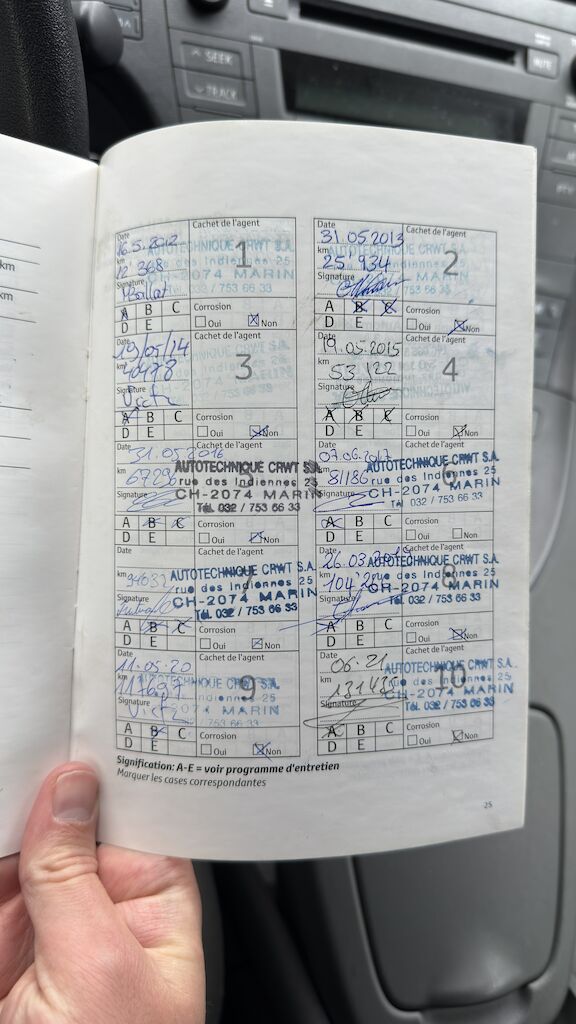 SEEK
TRACK
MUTE
km
km
Date
Cachet de l'agent
16.5.2012
AUTOTECHNIQUE CRWT S.A.
km
1
rue des Indiennes 25
12 368
CH-2074 MARIN
Signature
Tél. 032 / 753 66 33
A B C
Corrosion
D E
Oui
Non
Date
Cachet de l'agent
31 05 2013
AUTOTECHNIQUE CRWT S.A.
km
2
rue des Indiennes 25
25'934
CH-2074 MARIN
Signature
A B C
Corrosion
D E
Oui
Non
Date
Cachet de l'agent
19/05/14
km
3
40478
Signature
A B C
Corrosion
D E
Oui
Non
Date
Cachet de l'agent
19.05.2015
km
4
53 122
Signature
A B C
Corrosion
D E
Oui
Non
Date
Cachet de l'agent
31.05.2016
AUTOTECHNIQUE CRWT S.A.
km
rue des Indiennes 25
CH-2074 MARIN
Signature
Tél. 032 / 753 66 33
A B C
Corrosion
D E
Oui
Non
Date
Cachet de l'agent
07.06.2017
AUTOTECHNIQUE CRWT S.A.
km
6
81186
rue des Indiennes 25
CH-2074 MARIN
Signature
Tél. 032 / 753 66 33
A B C
Corrosion
D E
Oui
Non
Date
Cachet de l'agent
AUTOTECHNIQUE CRWT S.A.
km
7
rue des Indiennes 25
CH-2074 MARIN
Signature
Tél. 032 / 753 66 33
A B C
Corrosion
D E
Oui
Non
Date
Cachet de l'agent
AUTOTECHNIQUE CRWT S.A.
km
8
rue des Indiennes 25
CH-2074 MARIN
Signature
Tél. 032 / 753 66 33
A B C
Corrosion
D E
Oui
Non
Date
Cachet de l'agent
11.05.20
AUTOTECHNIQUE CRWT S.A.
km
9
rue des Indiennes 25
CH-2074 MARIN
Signature
Tél. 032 / 753 66 33
A B C
Corrosion
D E
Oui
Non
Date
Cachet de l'agent
06.21
AUTOTECHNIQUE CRWT S.A.
km
10
rue des Indiennes 25
CH-2074 MARIN
Signature
Tél. 032 / 753 66 33
A B C
Corrosion
D E
Oui
Non
Signification: A-E = voir programme d'entretien
Marquer les cases correspondantes
25